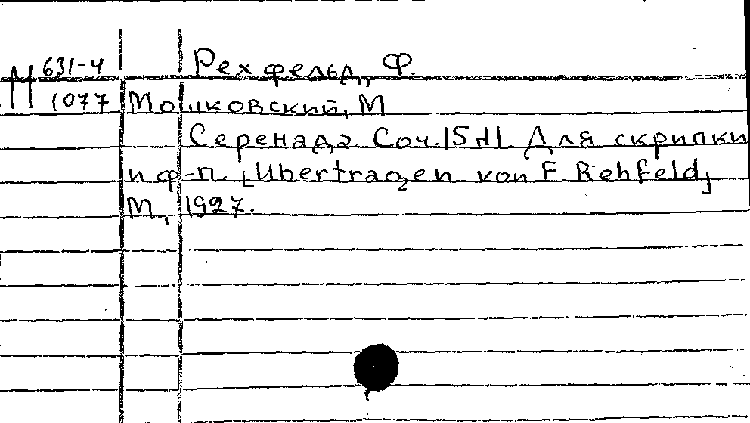 631-4 Рехфельд, Ф.
М 1077 Мошковский, М
Серенада Соч. 15 №1 Для скрипки
и ф-п. [Ubertragen von F. Rehfeld]
М., 1927.